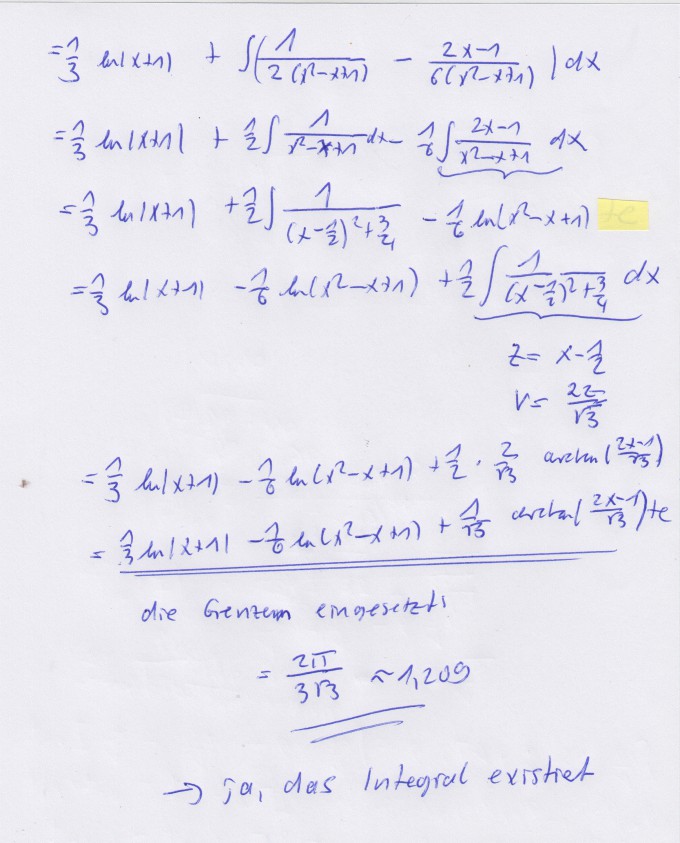 = 1/3 ln|x+1| + ∫(1/(2(x²-x+1)) - (2x-1)/(6(x²-x+1))) dx
= 1/3 ln|x+1| + 1/2 ∫ 1/(x²-x+1) dx - 1/6 ∫ (2x-1)/(x²-x+1) dx
= 1/3 ln|x+1| + 1/2 ∫ 1/((x-1/2)²+3/4) - 1/6 ln(x²-x+1) +c
= 1/3 ln|x+1| - 1/6 ln(x²-x+1) + 1/2 ∫ 1/((x-1/2)²+3/4) dx
z = x-1/2
v = 2z/√3
= 1/3 ln|x+1| - 1/6 ln(x²-x+1) + 1/2 · 2/√3 arctan((2x-1)/√3)
= 1/3 ln|x+1| - 1/6 ln(x²-x+1) + 1/√3 arctan((2x-1)/√3) +c
die Grenzen eingesetzt:
= 2π/(3√3) ≈ 1,209
→ ja, das Integral existiert